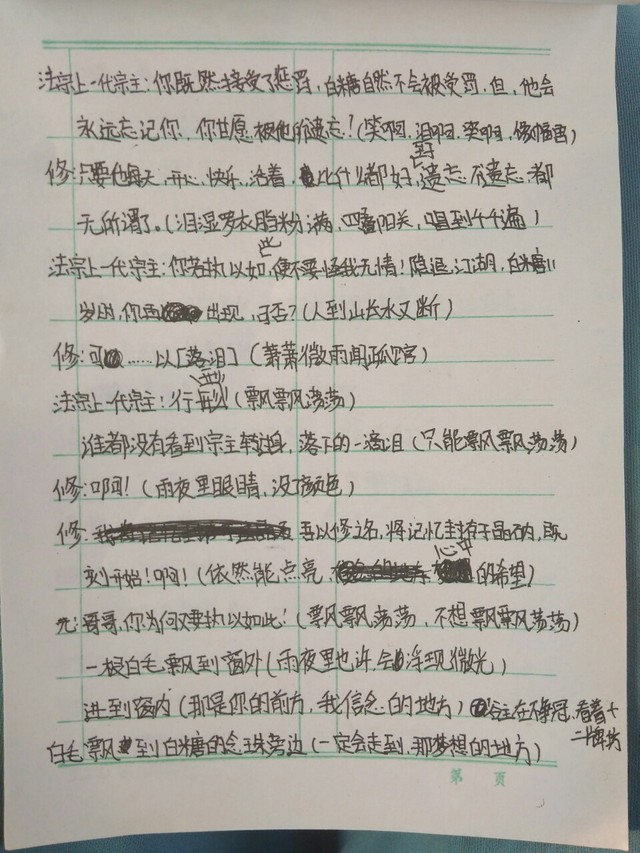 法宗上一代宗主：你既然接受了惩罚，白糖自然不会被受罚，但，他会
永远忘记你，你甘愿被他所遗忘？（笑啊，泪啊，笑啊，
修：只要他每天，开心，快乐，活着，比什么都好，遗忘，不遗忘，都
无所谓了。（泪湿罗衣脂粉满，四叠阳关，唱到千千遍）
法宗上一代宗主：你若执以如此，便不要怪我无情！隐退江湖，白糖11
岁时，你再出现，可否？（人到山长水又断）
修：可……以[落泪]（萧萧微雨闻孤馆）
法宗上一代宗主：行刑！（飘飘荡荡）
谁都没有看到宗主转过身，落下的一滴泪（只能飘飘荡荡）
修：啊！（雨夜里眼睛，没了颜色）
修：吾以修之名，将记忆封存于晶石内，既
刻开始！啊！（依然能点亮，心中的希望）
哥哥，你为何要执以如此！（飘飘荡荡，不想飘飘荡荡）
一根白毛飘到窗外（雨夜里也许，会浮现微光）
进到窗内（那是你的前方，我信念的地方）
看着十
二牌坊
白毛飘到白糖的念珠旁边（一定会走到，那梦想的地方）
第 页